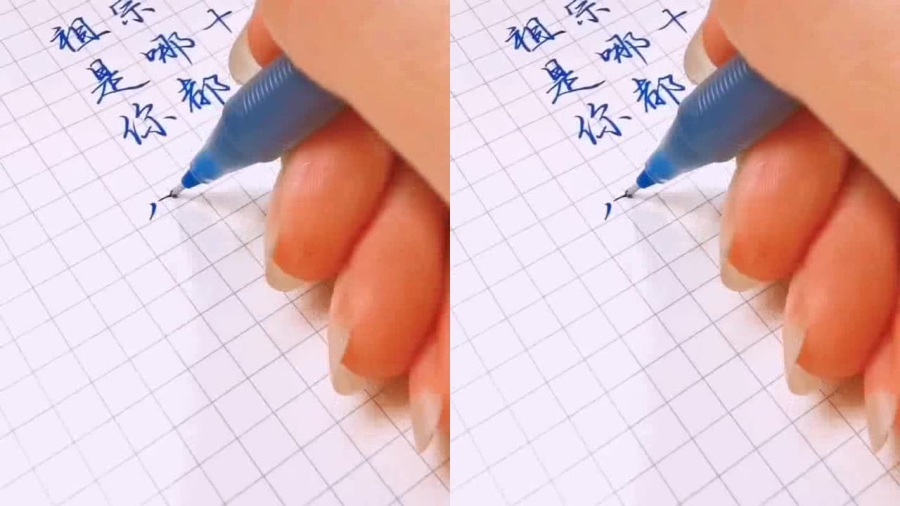 祖宗
是哪十
你都
祖宗
是哪十
你都